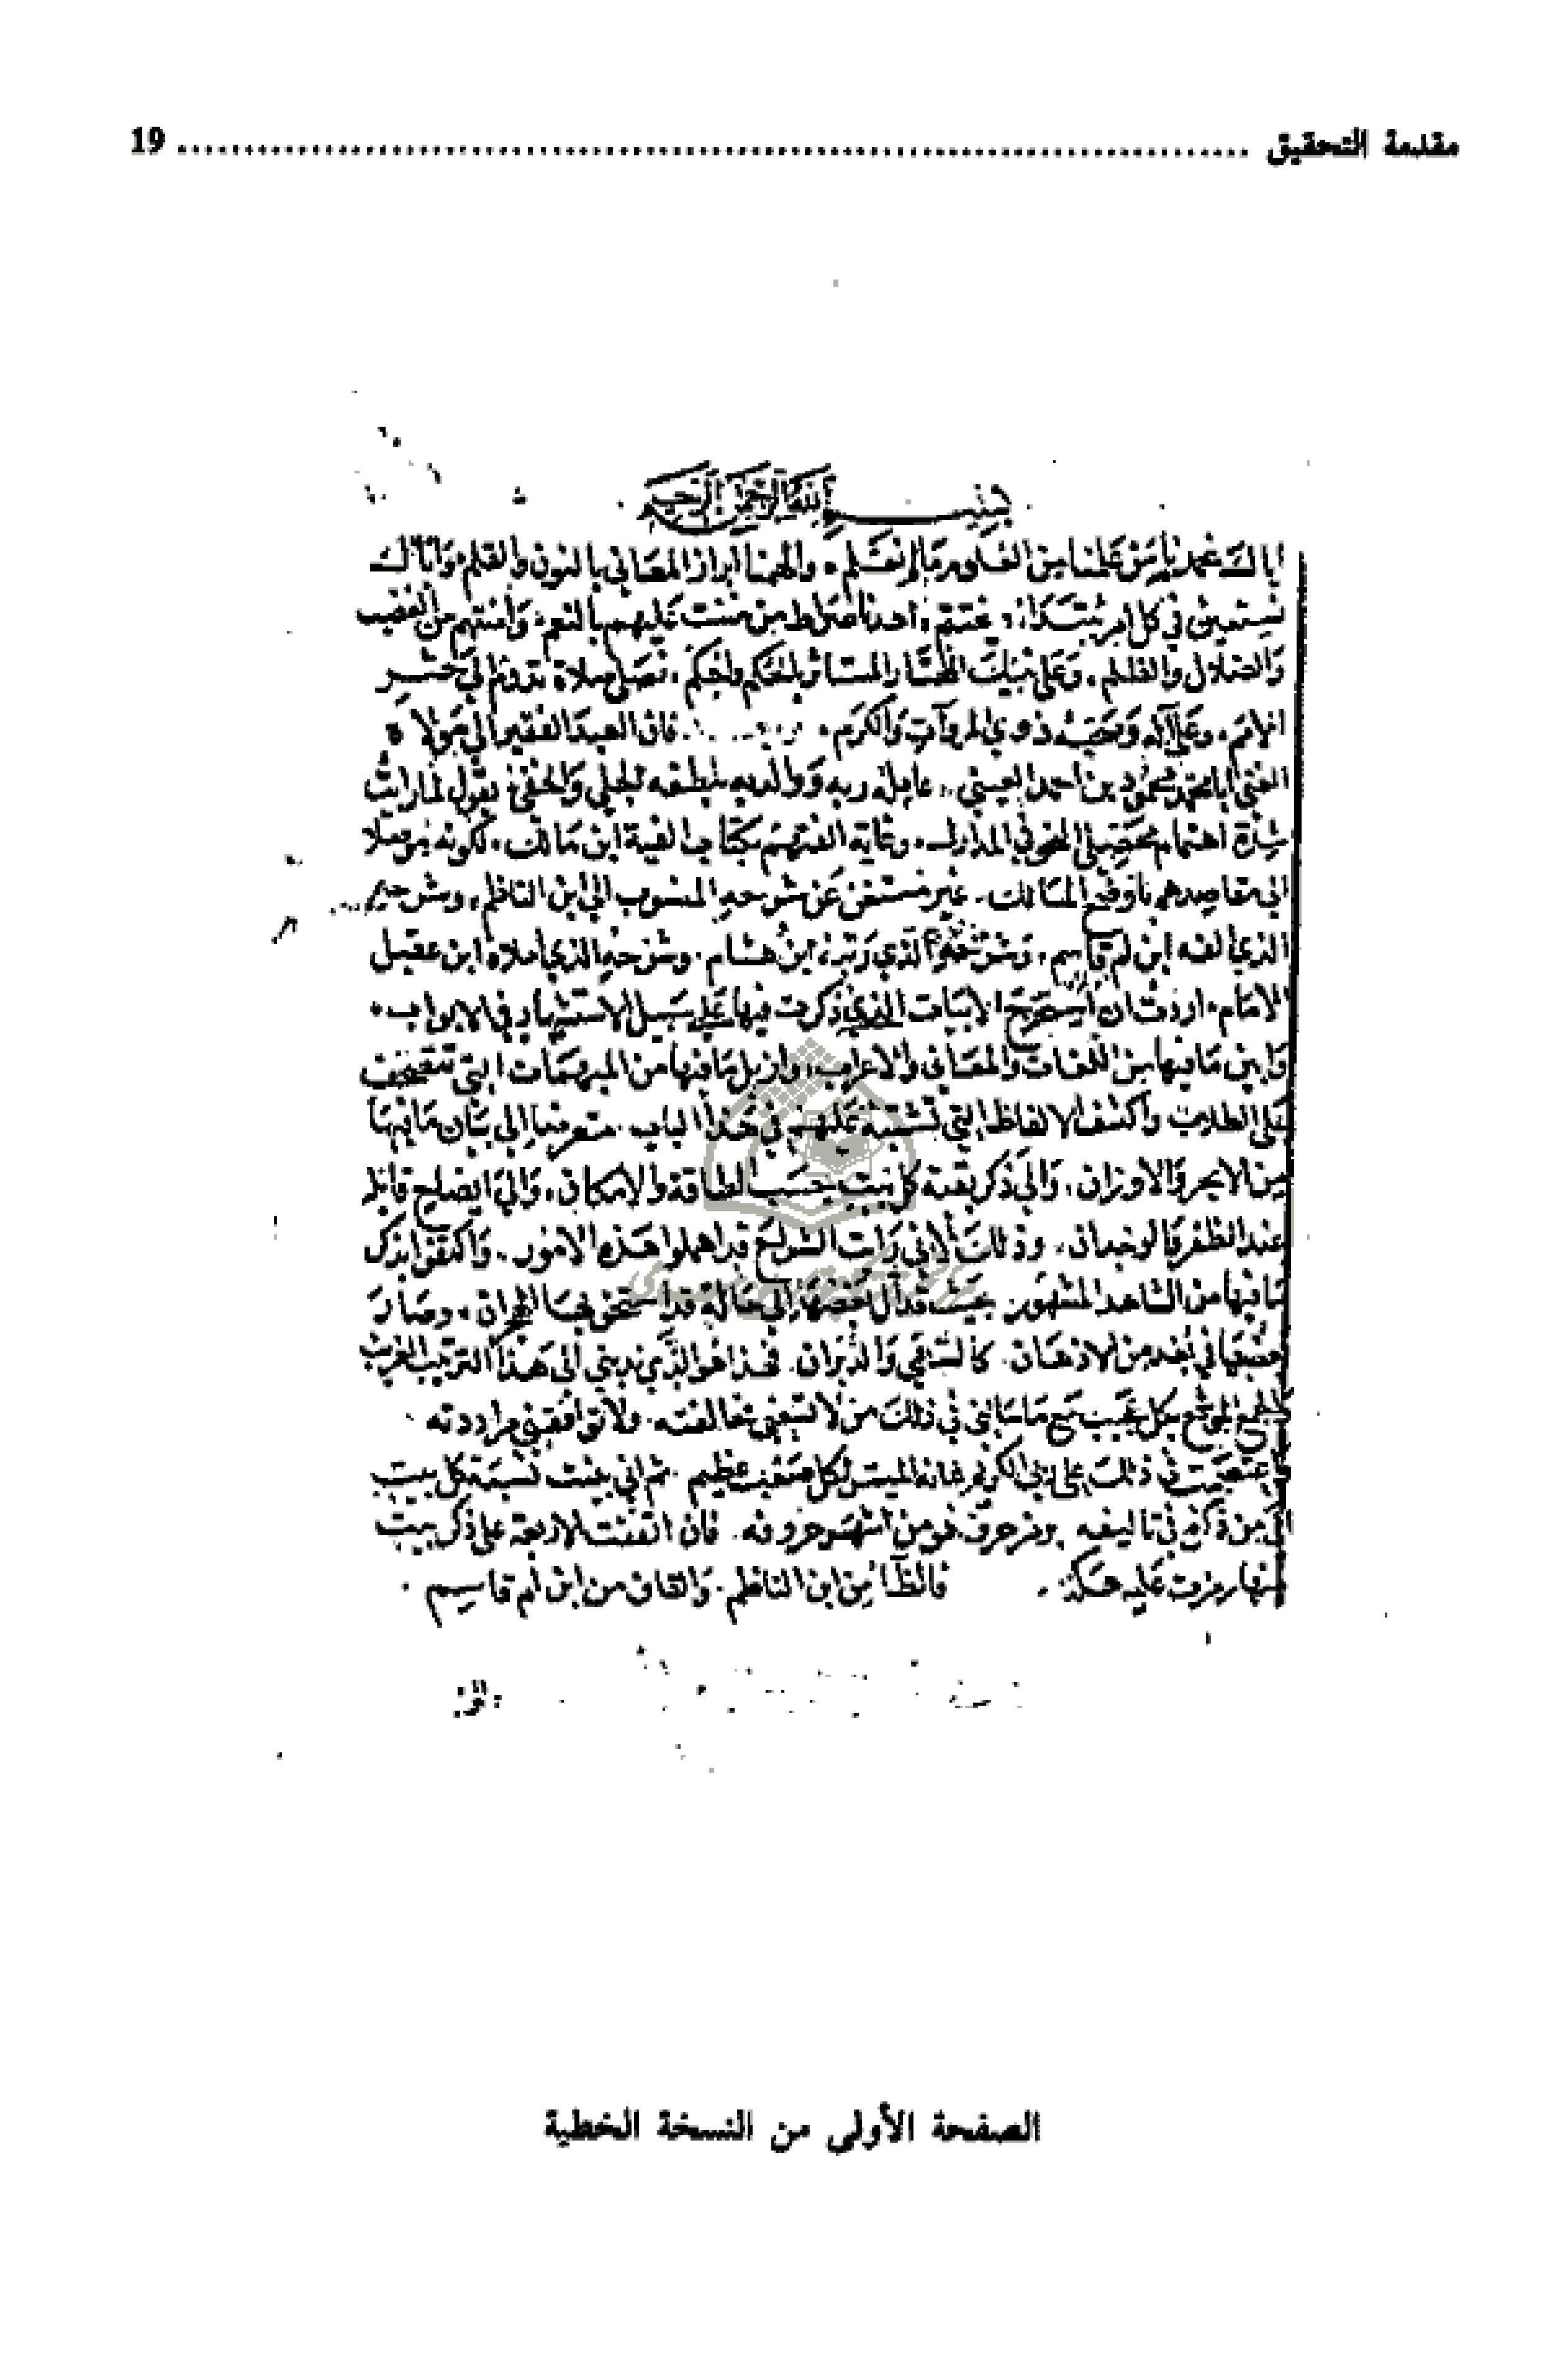 مقدمة التحقيق ........ 19
بسم الله الرحمن الرحيم
اياك نحمد يا من علمنا من العلوم ما لم نعلم والهمنا ابراز المعاني بالنون والقلم واياك
نستعين في كل امر يبتدأ او يختتم اهدنا صراط من مننت عليهم بالنعم وامنتهم من الغضب
والضلال والظلم وعلى نبيك المختار المستأثر بالحكم والحكم نصلي صلاة تدوم الى حشر
الامم وعلى اله وصحبه ذوي المروآت والكرم فان العبد الفقير الى مولاه
الغني ابا محمد محمود بن احمد العيني عامله ربه ووالديه بلطفه الجلي والخفي يقول لما رأيت
شدة اهتمام محصلي النحو في المدارس وغاية الفتهم بكتاب الفية ابن مالك لكونه موصلا
الى مقاصدهم باوضح المسالك غير مستغن عن شرحه المنسوب الى ابن الناظم وشرحه
الذي الفه ابن ام قاسم وشرحه الذي رتبه ابن هشام وشرحه الذي املاه ابن عقيل
الامام اردت ان استخرج الابيات التي ذكرت فيها على سبيل الاستشهاد في الابواب
وابين ما فيها من اللغات والمعاني والاعراب وازيل ما فيها من المبهمات التي تصحفت
على الطلاب واكشف الالفاظ التي تشتبه عليهم في هذا الباب متعرضا الى بيان ما فيها
من الابحر والاوزان والى ذكر بقية كل بيت بحسب الطاقة والامكان والى ايضاح قائله
عند الظفر والوجدان وذلك لاني رأيت الشراح قد اهملوا هذه الامور واكتفوا بذكر
ما فيها من الشاهد المشهور بحيث قد آل بعضها الى حالة قد استحق بها الهجران وصار
بعضها في بعد من الاذهان فهذا هو الذي ندبني الى هذا الترتيب الغريب
مع ما سابني في ذلك من لا تسعني مخالفته ولا توافقني مراددته
في ذلك على ربي الكريم فانه الميسر لكل صعب عظيم ثم اني بينت نسبة كل بيت
الى من ذكره في تاليفه برمز حرف هو من اشهر حروفه فان اتفقت الاربعة على ذكر بيت
منها رمزت عليه هكذا فالظاء من ابن الناظم والقاف من ابن أم قاسم
الصفحة الأولى من النسخة الخطية